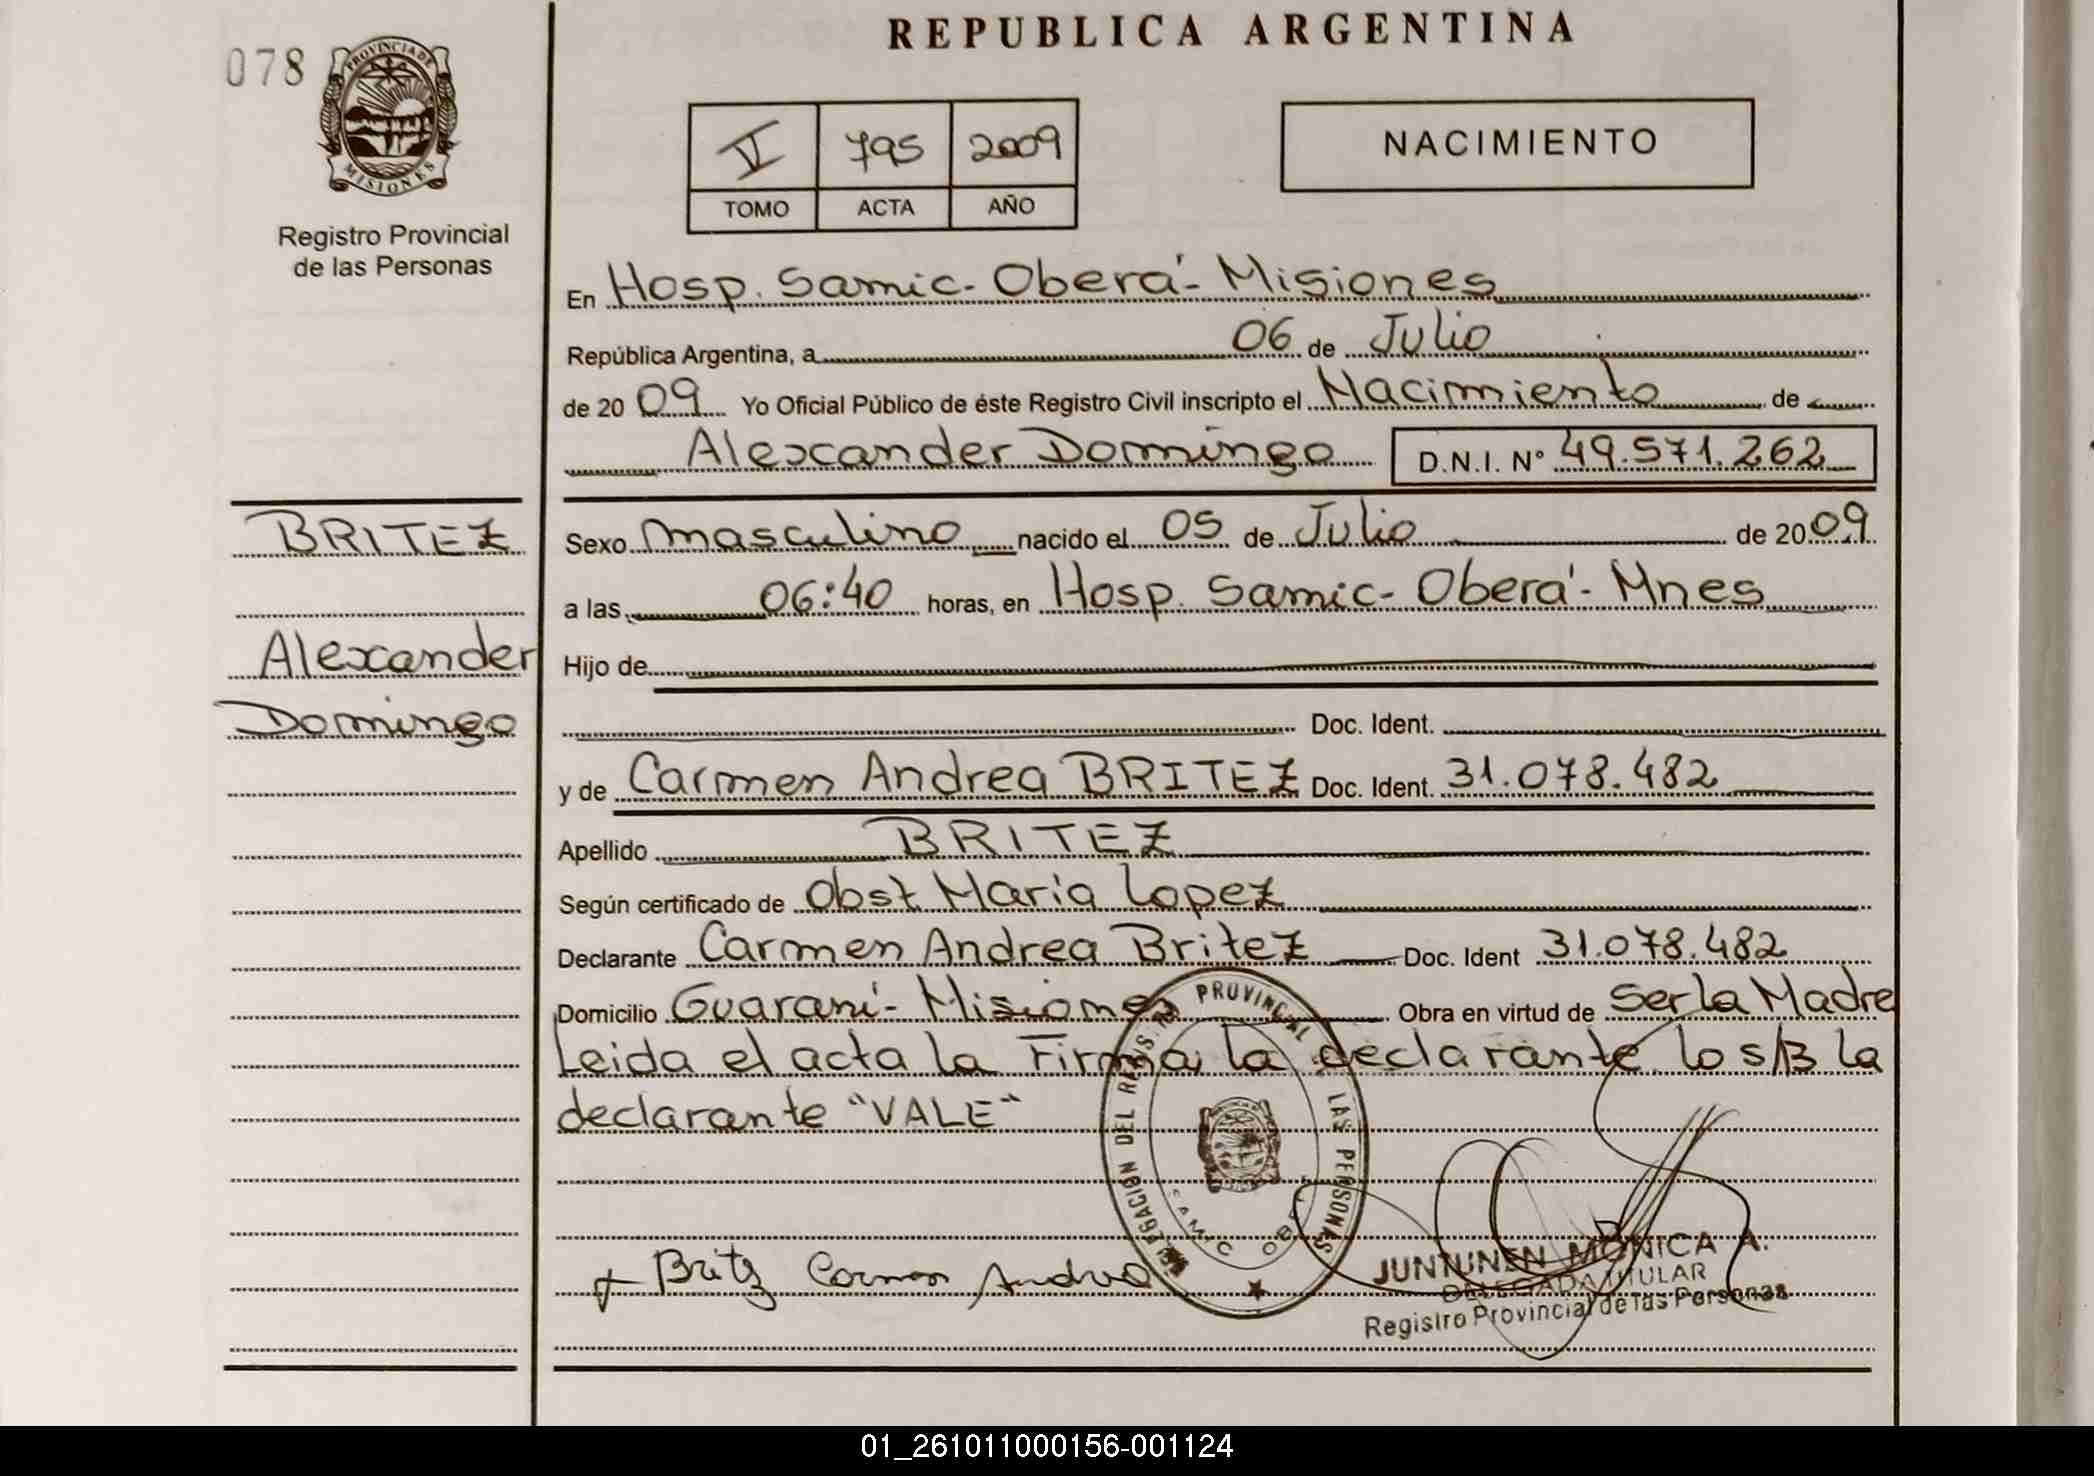 REPUBLICA ARGENTINA
078
PROVINCIA DE
MISIONES
Registro Provincial
de las Personas
V 795 2009
TOMO ACTA AÑO
NACIMIENTO
En Hosp. Samic - Oberá - Misiones
República Argentina, a 06 de Julio
de 20 09 Yo Oficial Público de éste Registro Civil inscripto el Nacimiento de
Alexcander Domingo D.N.I. Nº 49.571.262
BRITEZ
Alexcander
Domingo
Sexo masculino nacido el 05 de Julio de 20 09
a las 06:40 horas, en Hosp. Samic - Oberá - Mnes
Hijo de
Doc. Ident.
y de Carmen Andrea BRITEZ Doc. Ident. 31.078.482
Apellido BRITEZ
Según certificado de Obst Maria Lopez
Declarante Carmen Andrea Britez Doc. Ident 31.078.482
Domicilio Guaraní - Misiones Obra en virtud de Ser la Madre
Leida el acta la Firma la declarante lo s/B la
declarante "VALE"
DELEGACION DEL REGIS. PROVINCIAL LAS PERSONAS
SAMIC
Britz Carmen Andrea
JUNTUNEN MONICA A.
DELEGADA TITULAR
Registro Provincial de las Personas
01_261011000156-001124